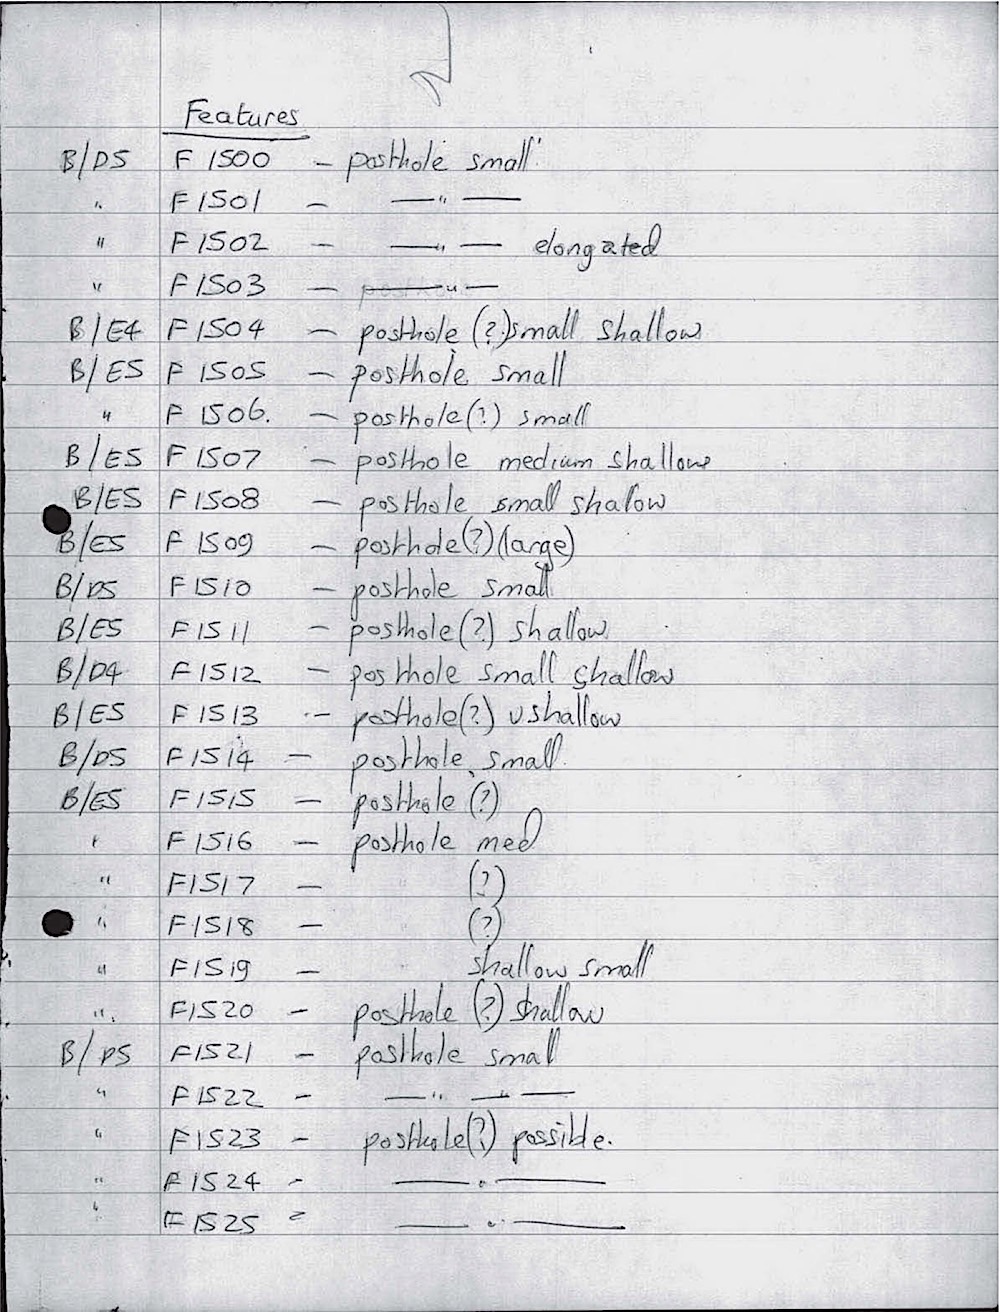 Features
B/D5 F 1500 – posthole small
" F1501 – —"—
" F1502 – —"— elongated
" F1503 – —"—
B/E4 F1504 – posthole (?) small shallow
B/E5 F 1505 – posthole small
" F 1506. – posthole(?) small
B/E5 F 1507 – posthole medium shallow
B/E5 F1508 – posthole small shalow
B/E5 F 1509 – posthole(?) (large)
B/D5 F1510 – posthole small
B/E5 F1511 – posthole(?) shallow
B/D4 F1512 – posthole small shallow
B/E5 F1513 – posthole(?) v shallow
B/D5 F1514 – posthole small.
B/E5 F1515 – posthole (?)
" F1516 – posthole med
" F1517 – " (?)
" F1518 – (?)
" F1519 – " shallow small
" F1520 – posthole (?) shallow
B/D5 F1521 – posthole small
" F1522 – —"— —"—
" F1523 – posthole(?) possible.
" F1524 - —"—
" F1525 - —"—